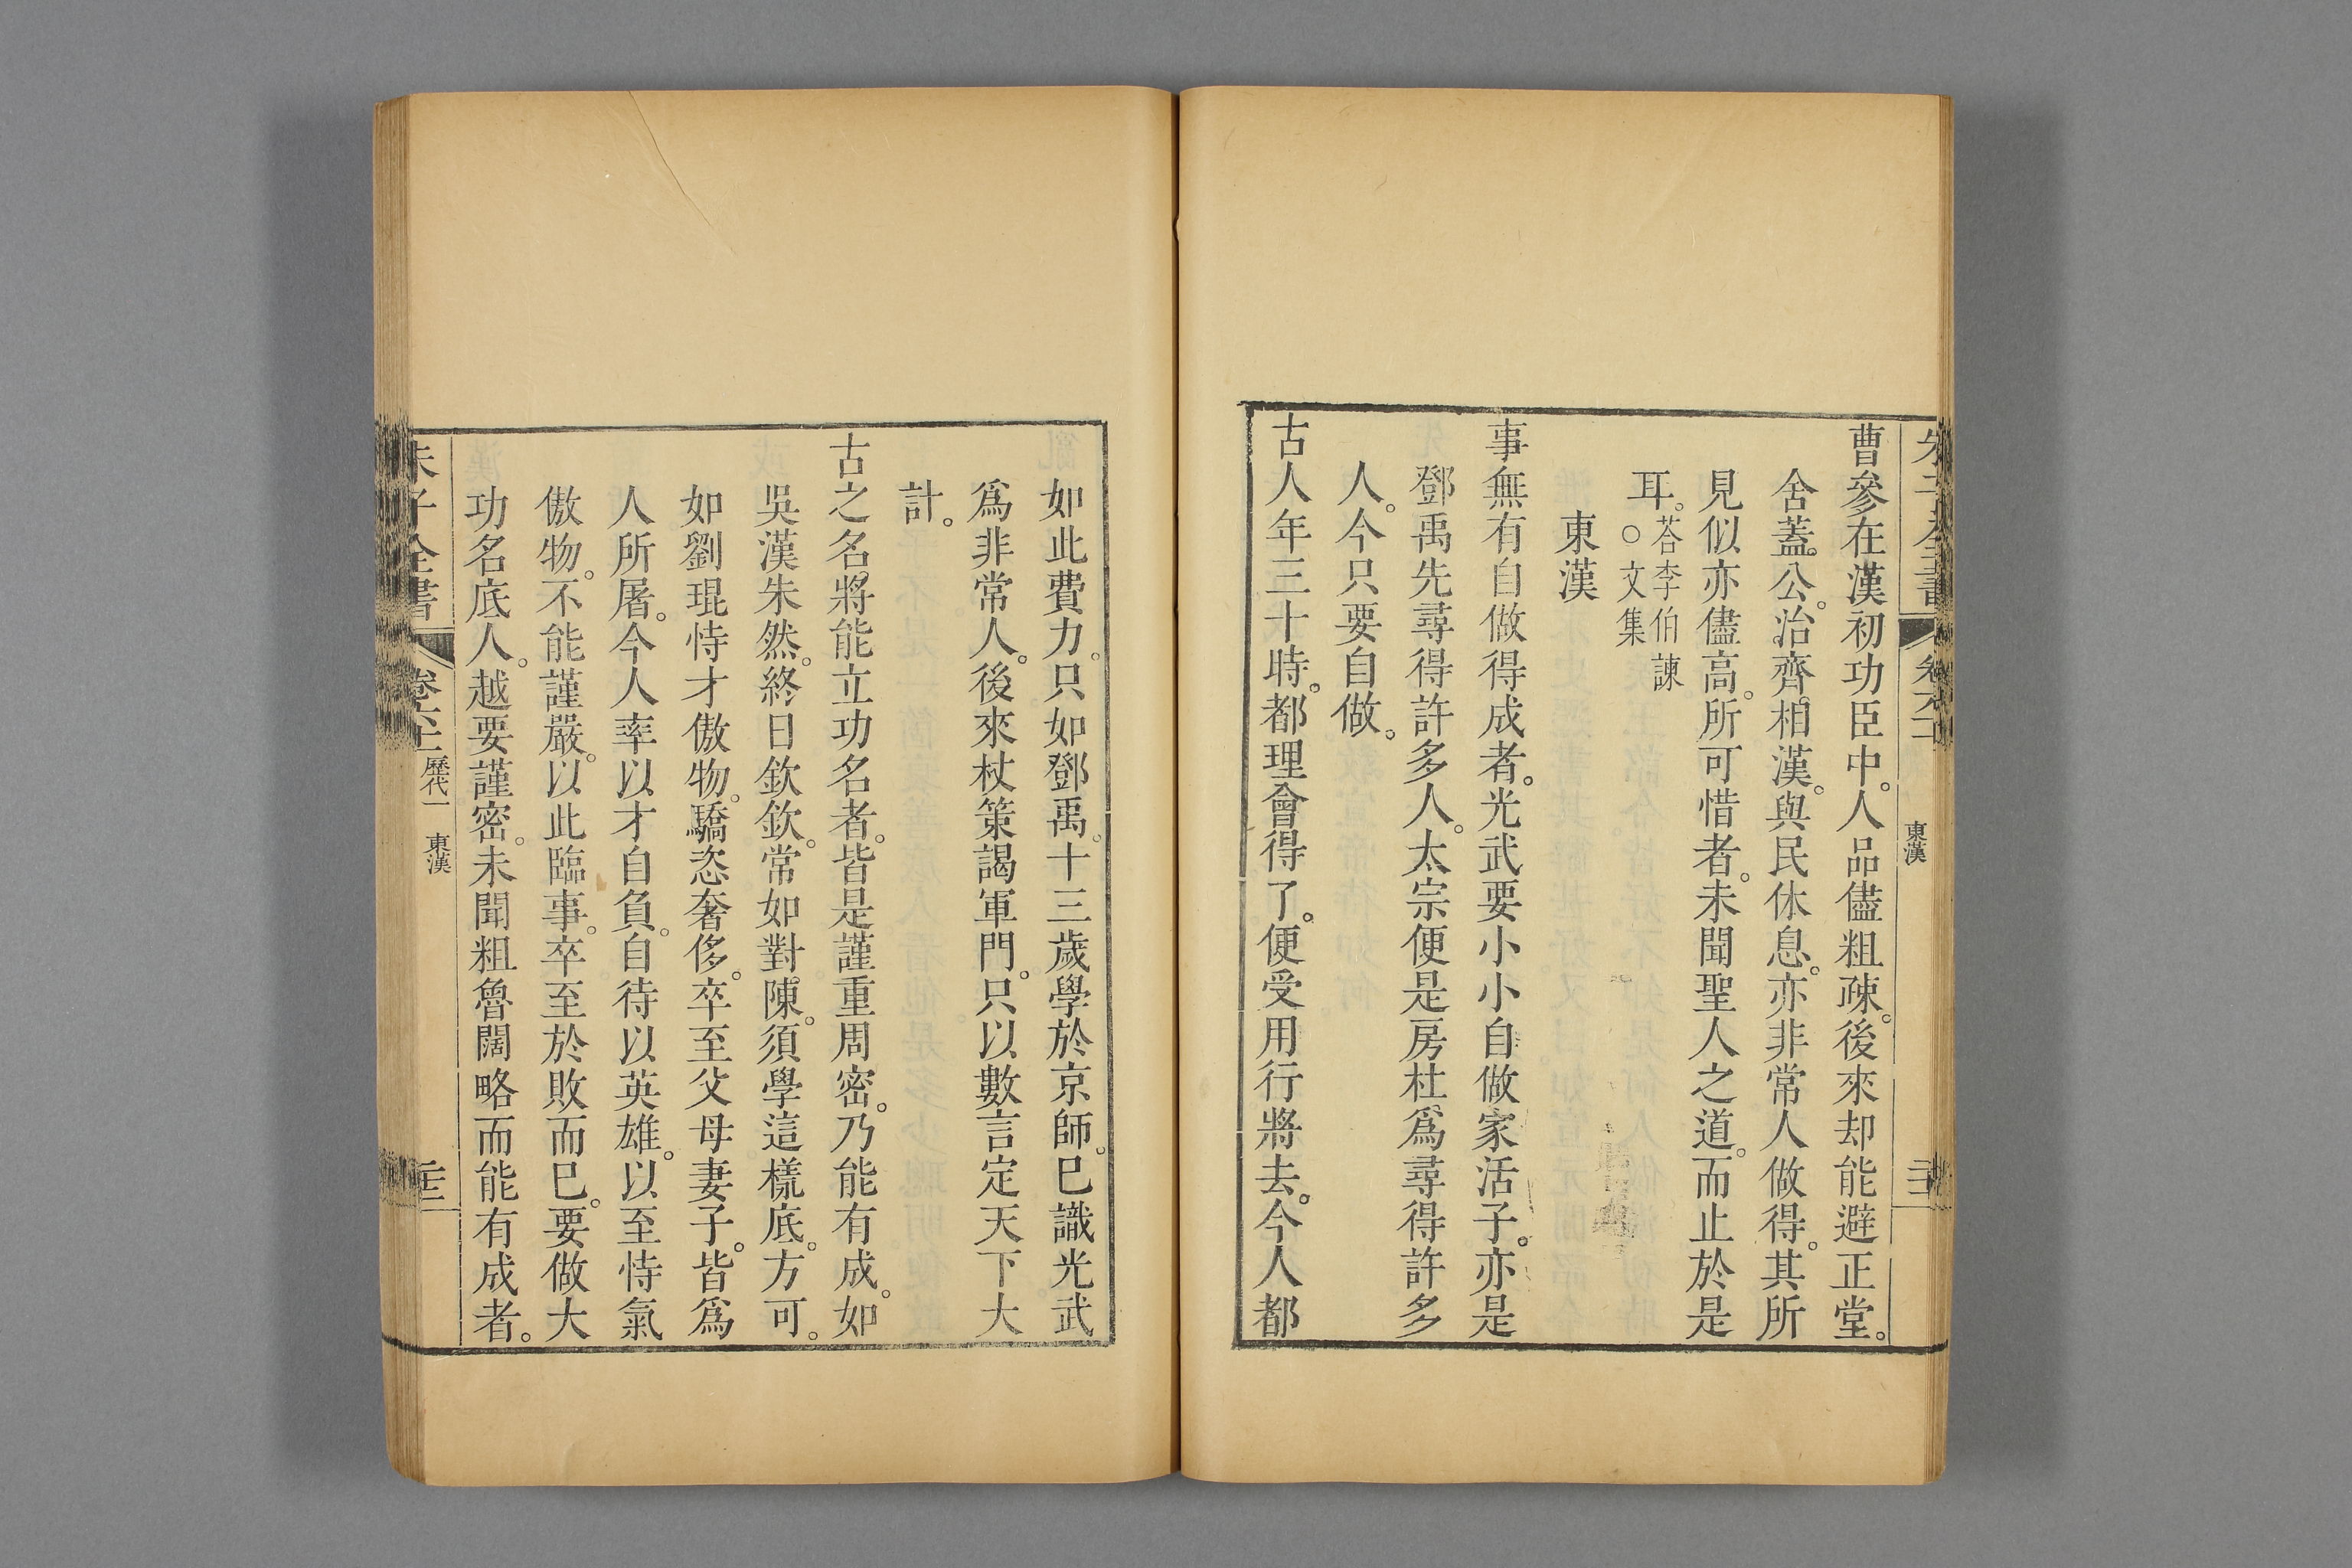 曹參在漢初功臣中。人品儘粗疎。後來却能避正堂。
舍蓋。公。治齊。相漢。與民休息。亦非常人做得。其所
見似亦儘高。所可惜者。未聞聖人之道。而止於是
耳。荅李伯諫
○文集
東漢
事無有自做得成者。光武要小小自做家活子。亦是
鄧禹先尋得許多人。太宗便是房杜爲尋得許多
人。今只要自做。
古人年三十時。都理會得了。便受用行將去。今人都
如此費力。只如鄧禹。十三歲學於京師。已識光武
爲非常人。後來杖策謁軍門。只以數言定天下大
計。
古之名將能立功名者。皆是謹重周密。乃能有成。如
吳漢朱然。終日欽欽。常如對陳。須學這樣底。方可。
如劉琨恃才傲物。驕恣奢侈。卒至父母妻子。皆爲
人所屠。今人率以才自負。自待以英雄。以至恃氣
傲物。不能謹嚴。以此臨事。卒至於敗而已。要做大
功名底人。越要謹密。未聞粗魯闊略而能有成者。
朱子全書
歷代一
東漢
東漢